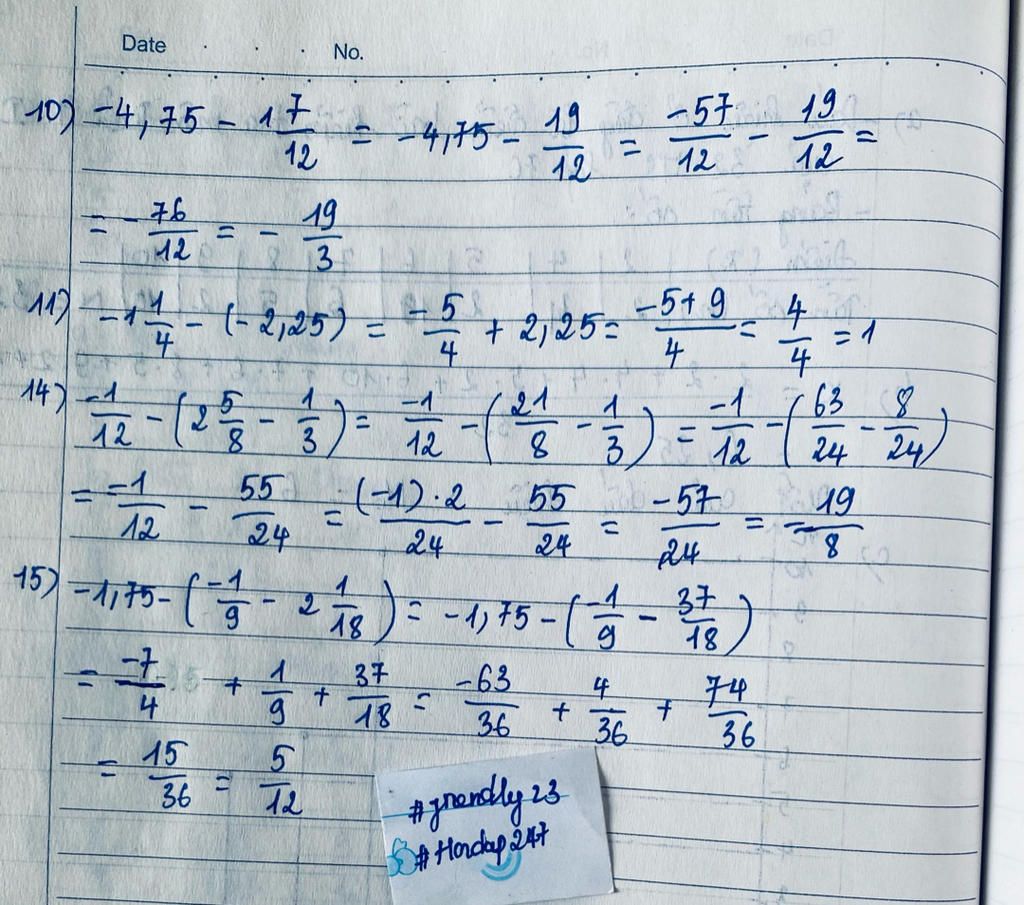 Date . . . . No.
10) -4,75 - 1 7/12 = -4,75 - 19/12 = -57/12 - 19/12 =
= - 76/12 = - 19/3
11) -1 1/4 - (-2,25) = -5/4 + 2,25 = (-5+9)/4 = 4/4 = 1
14) -1/12 - (2 5/8 - 1/3) = -1/12 - (21/8 - 1/3) = -1/12 - (63/24 - 8/24)
= -1/12 - 55/24 = (-1).2/24 - 55/24 = -57/24 = -19/8
15) -1,75 - (-1/9 - 2 1/18) = -1,75 - (-1/9 - 37/18)
= -7/4 + 1/9 + 37/18 = -63/36 + 4/36 + 74/36
= 15/36 = 5/12